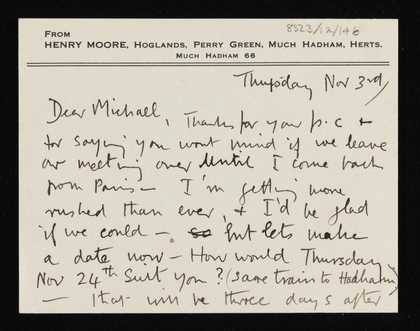 8523/12/148
FROM
HENRY MOORE, HOGLANDS, PERRY GREEN, MUCH HADHAM, HERTS.
MUCH HADHAM 66
Thursday Nov 3rd/
Dear Michael,
Thanks for your p.c +
for saying you wont mind if we leave
our meeting over until I come back
from Paris – I'm getting more
rushed than ever, + I'd be glad
if we could – so but lets make
a date now – How would Thursday
Nov 24th suit you? (same train to Hadham)
– That will be three days after